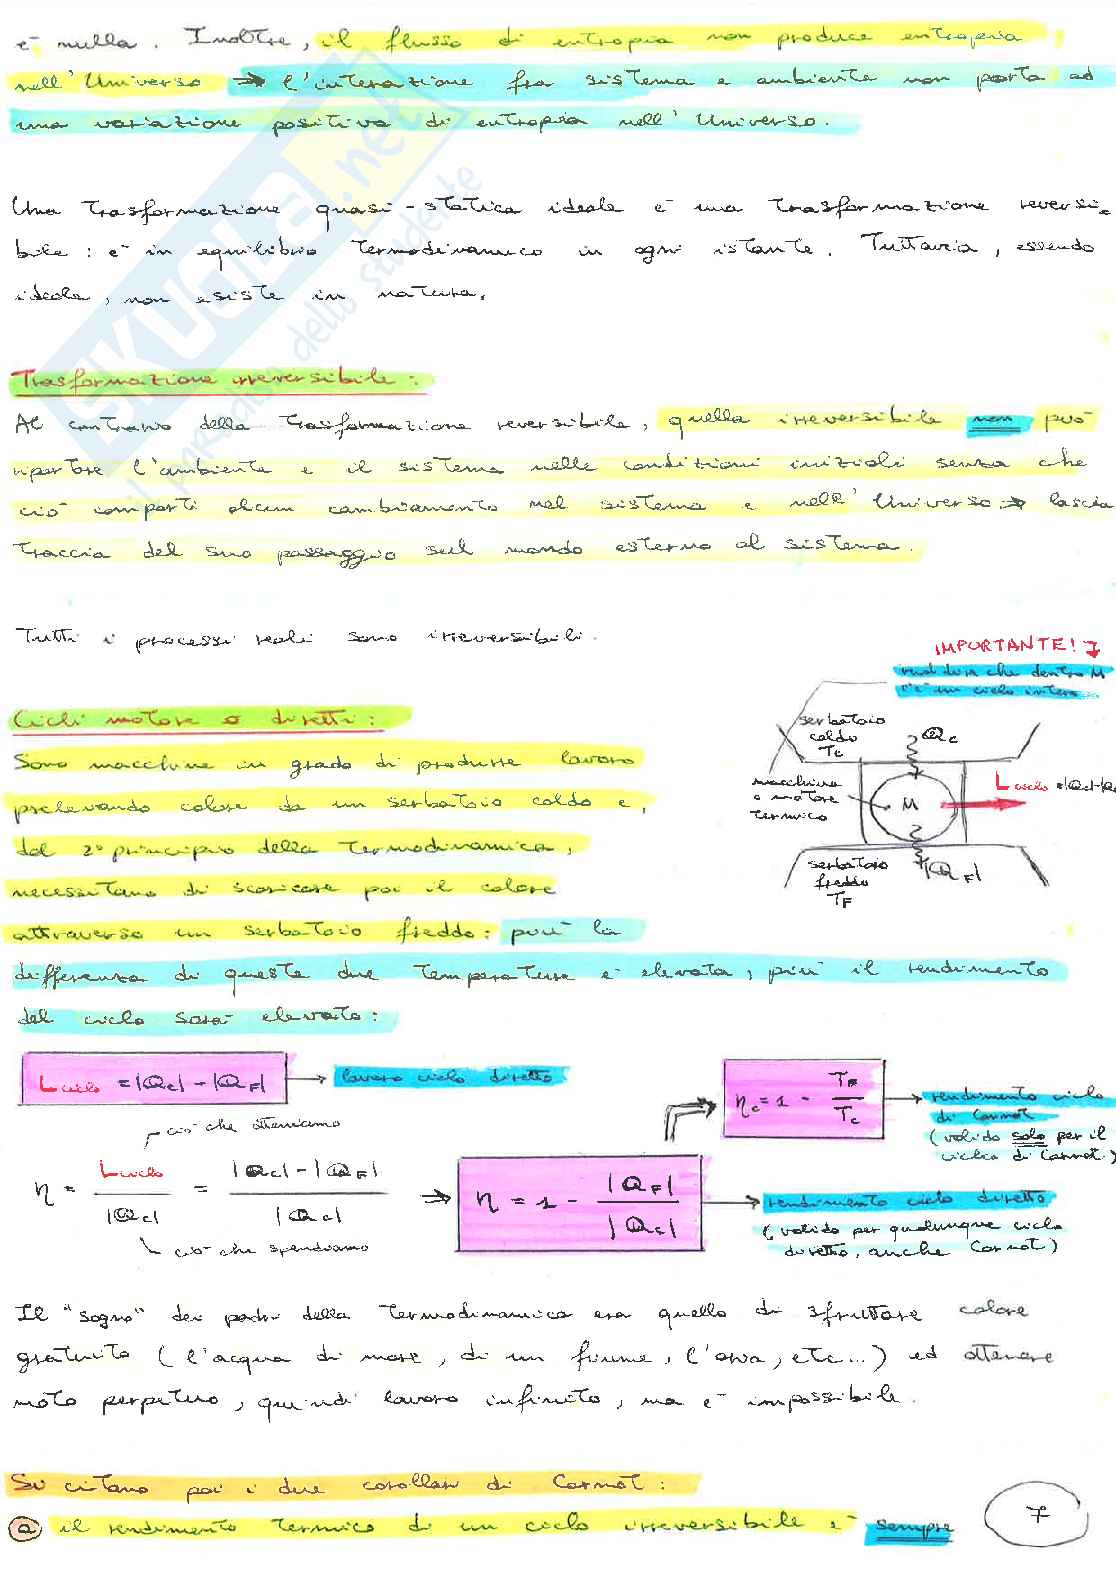 è nulla. Inoltre, il flusso di entropia non produce entropia
nell'Universo → l'interazione fra sistema e ambiente non porta ad
una variazione positiva di entropia nell'Universo.
Una trasformazione quasi-statica ideale è una trasformazione reversi-
bile: è in equilibrio termodinamico in ogni istante. Tuttavia, essendo
ideale, non esiste in natura.
Trasformazione irreversibile:
Al contrario della trasformazione reversibile, quella irreversibile non può
riportare l'ambiente e il sistema nelle condizioni iniziali senza che
ciò comporti alcun cambiamento nel sistema e nell'Universo → lascia
traccia del suo passaggio sul mondo esterno al sistema.
Tutti i processi reali sono irreversibili.
IMPORTANTE!
che dentro M
c'è un ciclo intero
Cicli motore o diretti:
serbatoio
caldo
Tc
Qc
macchina
o motore
termico
M
Lciclo = |Qc|-|Q
serbatoio
freddo
TF
|QF|
Sono macchine in grado di produrre lavoro
prelevando calore da un serbatoio caldo e,
dal 2° principio della termodinamica,
necessitano di scaricare poi il calore
attraverso un serbatoio freddo: più la
differenza di queste due temperature è elevata, più il rendimento
del ciclo sarà elevato:
Lciclo = |Qc| - |QF| → lavoro ciclo diretto
ηc = 1 - TF/Tc → rendimento ciclo
di Carnot
(valido solo per il
ciclo di Carnot)
ciò che otteniamo
η = Lciclo/|Qc| = |Qc| - |QF|/|Qc| → η = 1 - |QF|/|Qc| → rendimento ciclo diretto
(valido per qualunque ciclo
diretto, anche Carnot)
ciò che spendiamo
Il "sogno" dei padri della termodinamica era quello di sfruttare calore
gratuito (l'acqua di mare, di un fiume, l'aria, etc...) ed ottenere
moto perpetuo, quindi lavoro infinito, ma è impossibile.
Si citano poi i due corollari di Carnot:
a il rendimento termico di un ciclo irreversibile è sempre
7
SKUOLA.net
il paradiso dello studente